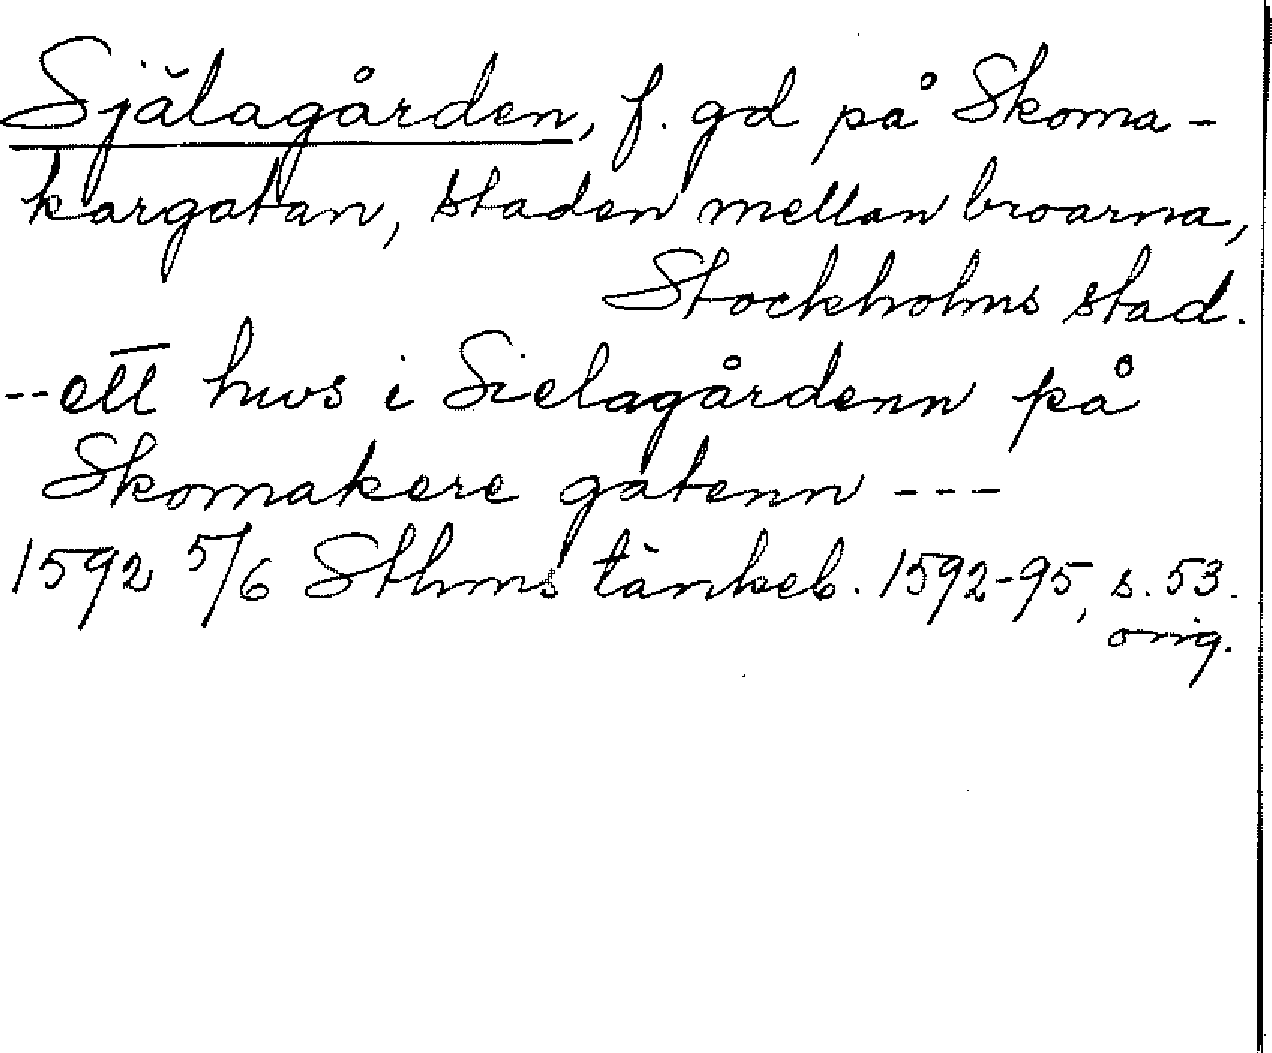 Själagården, f. gd på Skoma-
kargatan, staden mellan broarna,
Stockholms stad.
--ett huus i Sielagårdenn på
Skomakere gatenn ---
1592 5/6 Sthms tänkeb. 1592-95, s. 53.
orig.